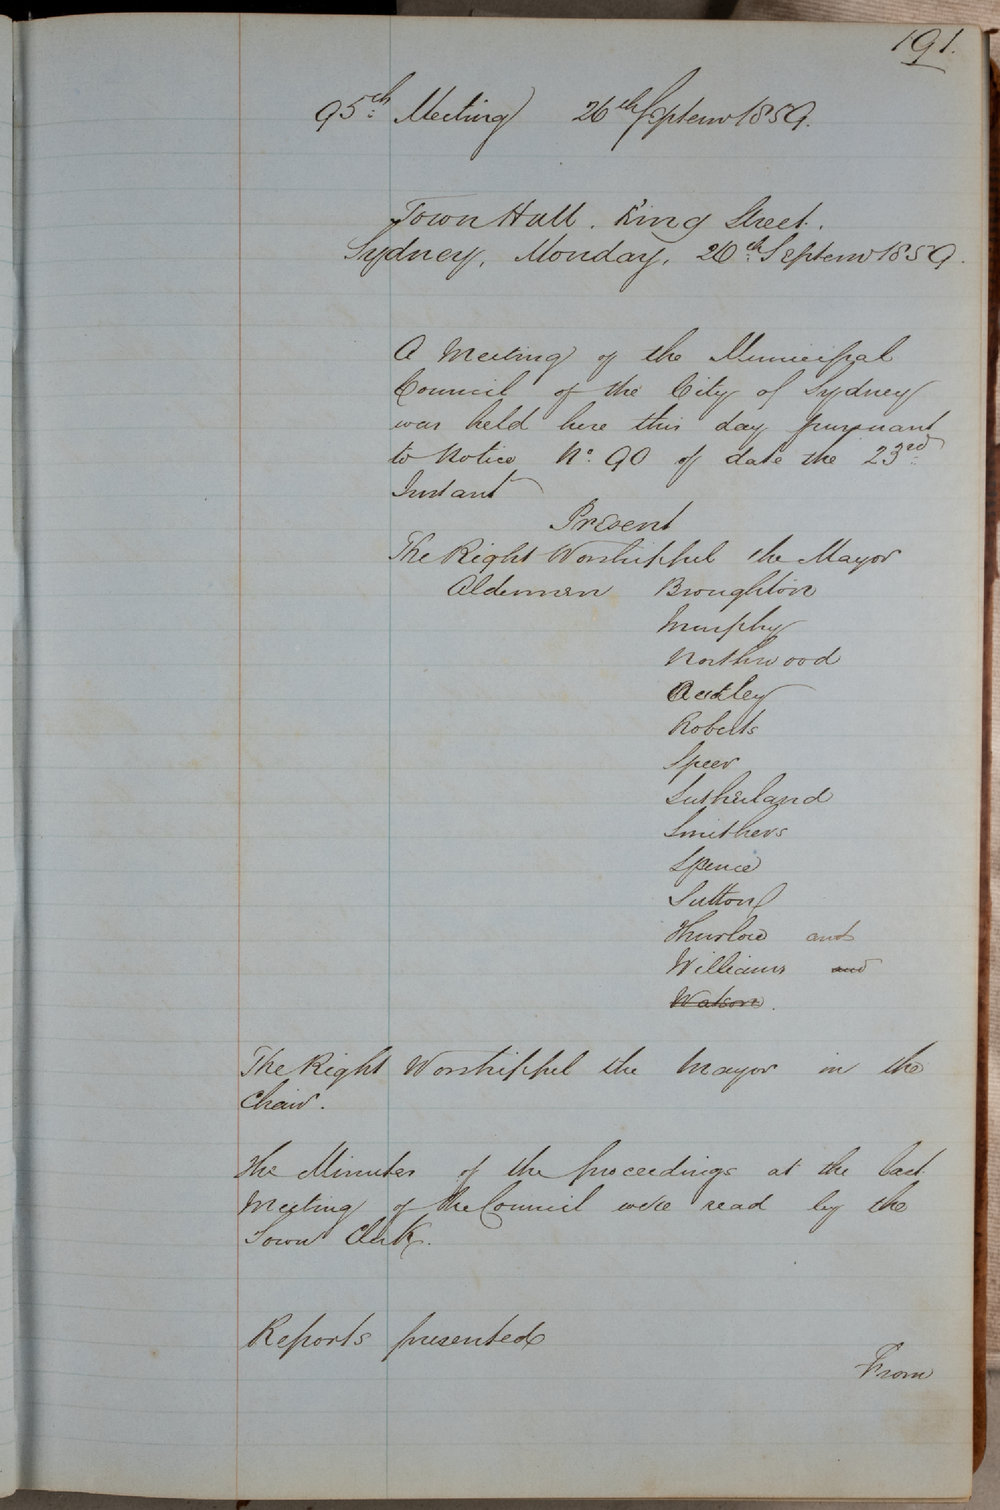 191.
95th Meeting 26th Septemr 1859.
Town Hall. King Street.
Sydney, Monday, 26th Septemr 1859.
A Meeting of the Municipal
Council of the City of Sydney
was held here this day pursuant
to Notice No. 90 of date the 23rd
Instant
Present
The Right Worshipful the Mayor
Aldermen Broughton
Murphy
Northwood
Oatley
Roberts
Speer
Sutherland
Smithers
Spence
Sutton
Thurlow and
Williams and
Watson.
The Right Worshipful the Mayor in the
Chair.
The Minutes of the proceedings at the last
Meeting of the Council were read by the
Town Clerk.
Reports presented
From